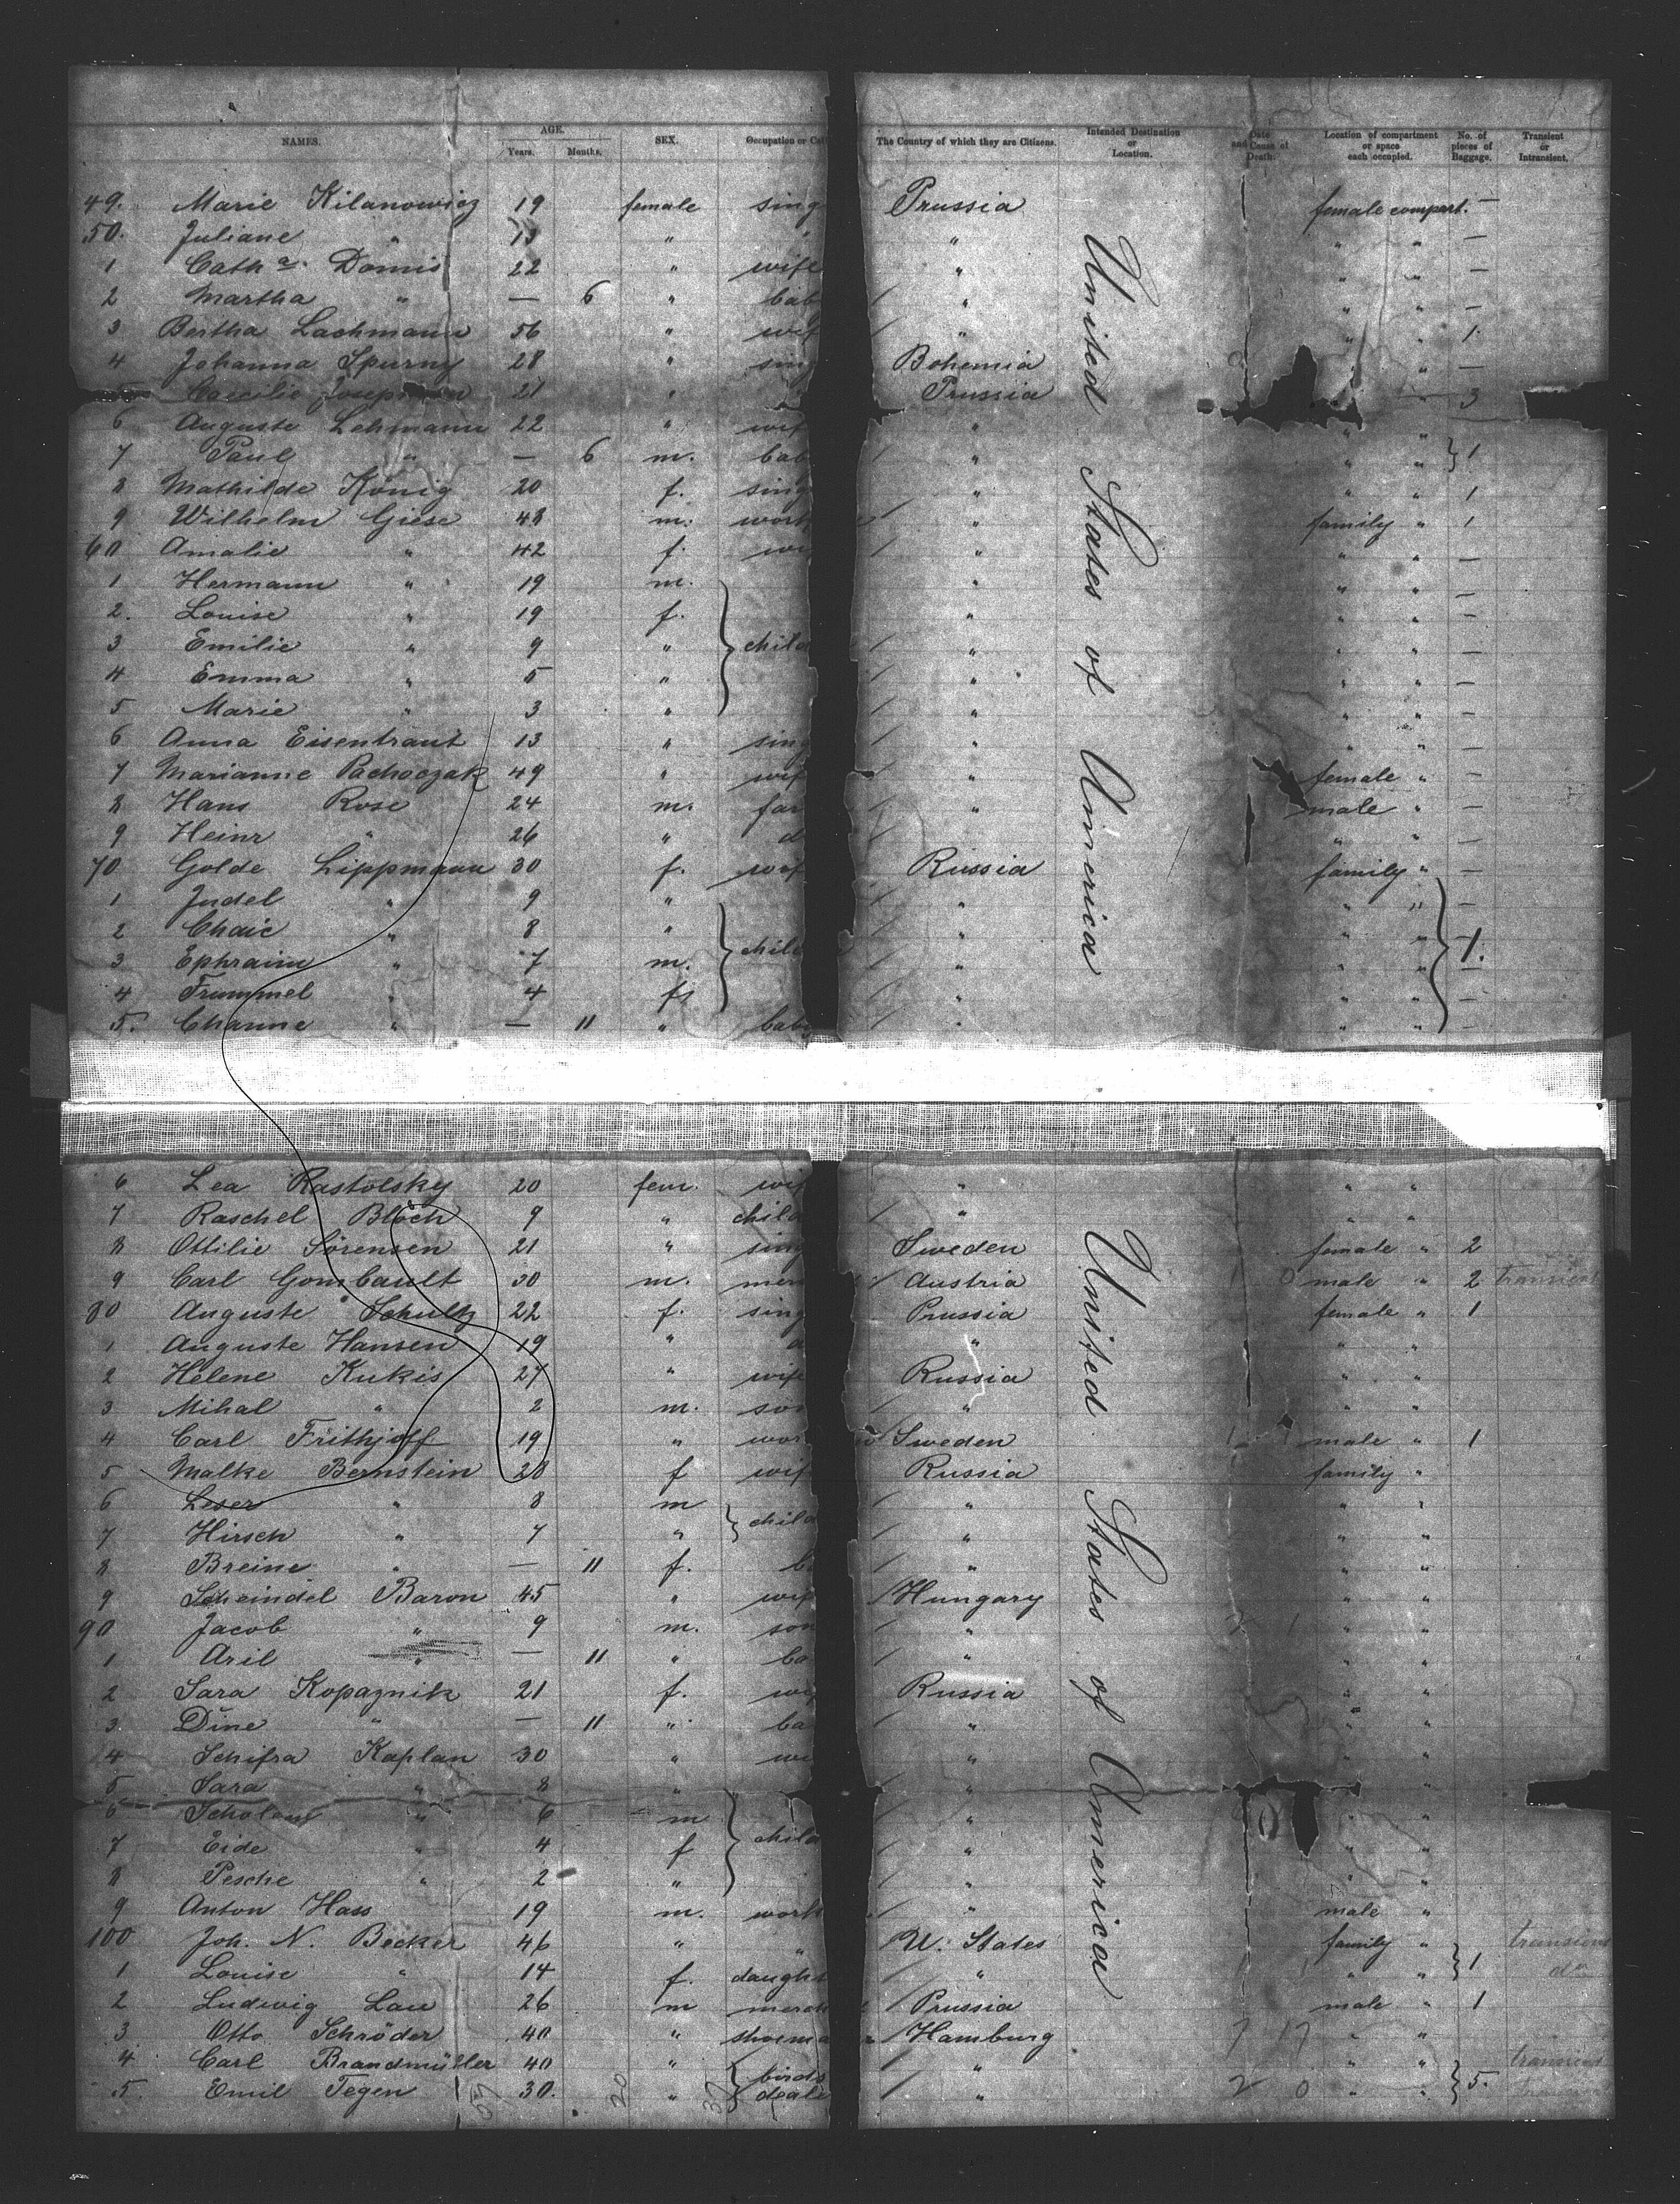 NAMES. AGE. Years. Months. SEX. Occupation or The Country of which they are Citizens. Intended Destination or Location. Date and Cause of Death. Location of compartment or space each occupied. No. of pieces of Baggage. Transient or Intransient.
49. Marie Kilanowicz 19 female sing Prussia female compart. —
50. Juliane " " " " " —
1 Cath a. Domis 22 " wife " " " —
2 Martha " — 6 " bab " " " —
3 Bertha Lachmann 56 " wif " " " 1
4 Johanna Spurny 28 " sing Bohemia " " —
5 Caecilie 21 " Prussia " 3
6 Auguste Lehmann 22 " wif " " "
7 Paul " — 6 m. bab " " " } 1
8 Mathilde König 20 f. sing " " " 1
9 Wilhelm Giese 48 m. work " family " 1
60 Amalie " 42 f. wi " " " —
1 Hermann " 19 m. " " " —
2. Louise " 19 f. " " " —
3 Emilie " 9 " child " " " —
4 Emma " 5 " " " " —
5 Marie " 3 " " " " —
6 Anna Eisentraut 13 " sing " " " —
7 Marianne Pachoczak 49 " wif " female " —
8 Hans Rose 24 m. far " male " —
9 Heinr " 26 " d " " " —
70 Golde Lippmann 30 f. wif Russia family " —
1 Judel " 9 " " " " —
2 Chaie " 8 " child " " " — 1.
3 Ephraim " 7 m. " " " —
4 Frummel " 4 f " " " —
5. Channe " — 11 " baby " " " —
United States of America
6 Lea Rastolsky 20 fem. wif " " "
7 Raschel Bloch 9 " child " " "
8 Ottilie Sörensen 21 " sing Sweden female " 2
9 Carl Gombault 30 m. mer Austria 0 male " 2 transient
80 Auguste Schultz 22 f. sing Prussia female " 1
1 Auguste Hansen 19 " d " " "
2 Helene Kukis 27 " wife Russia " "
3 Mihal " 2 m. son " " "
4 Carl Frithjoff 19 " wor Sweden male " 1
5 Malke Bernstein 28 f wif Russia family "
6 Leser " 8 m child " " "
7 Hirsch " 7 " " " "
8 Breine " — 11 f. b " " "
9 Scheindel Baron 45 " wif Hungary " "
90 Jacob " 9 m. son " " "
1 Aril " — 11 " ba " " "
2 Sara Kopaznik 21 f. wi Russia " "
3 Dine " — 11 " ba " " "
4 Schifra Kaplan 30 " wi " " "
5 Sara " 8 " " "
6 Scholem " 6 m " " "
7 Eide " 4 f child " " "
8 Pesche " 2 " " " "
9 Anton Hass 19 m. work " male "
100 Joh. N. Becker 46 " " U. States family " transient
1 Louise " 14 f. daught " " " } 1 do
2 Ludwig Lau 26 m merch Prussia male " 1
3 Otto Schröder 40 " shoema Hamburg 7 17 " "
4 Carl Brandmüller 40 " birds " " " transient
5. Emil Tegen 30. " deale " 2 0 " " } 5. transient
United States of America
20